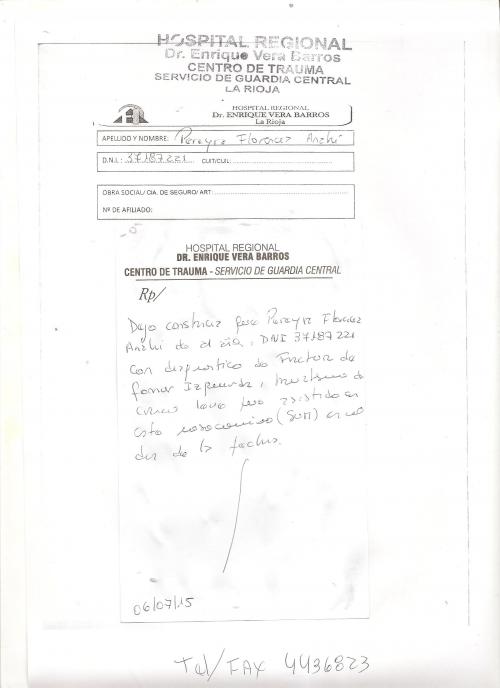 HOSPITAL REGIONAL
Dr. Enrique Vera Barros
CENTRO DE TRAUMA
SERVICIO DE GUARDIA CENTRAL
LA RIOJA
HOSPITAL REGIONAL
Dr. ENRIQUE VERA BARROS
La Rioja
APELLIDO Y NOMBRE: Pereyra Florencia Anahí
D.N.I.: 37187221 CUIT/CUIL:
OBRA SOCIAL/ CIA. DE SEGURO/ ART:
Nº DE AFILIADO:
HOSPITAL REGIONAL
DR. ENRIQUE VERA BARROS
CENTRO DE TRAUMA - SERVICIO DE GUARDIA CENTRAL
Rp/
Dejo constancia que Pereyra Florencia
Anahí de DNI 37187221
con diagnostico de Fractura de
femur Izquierda, traumatismo de
craneo leve fue asistido en
este nosocomio en el
dia de la fecha.
06/07/15
Tel/FAX 4436823